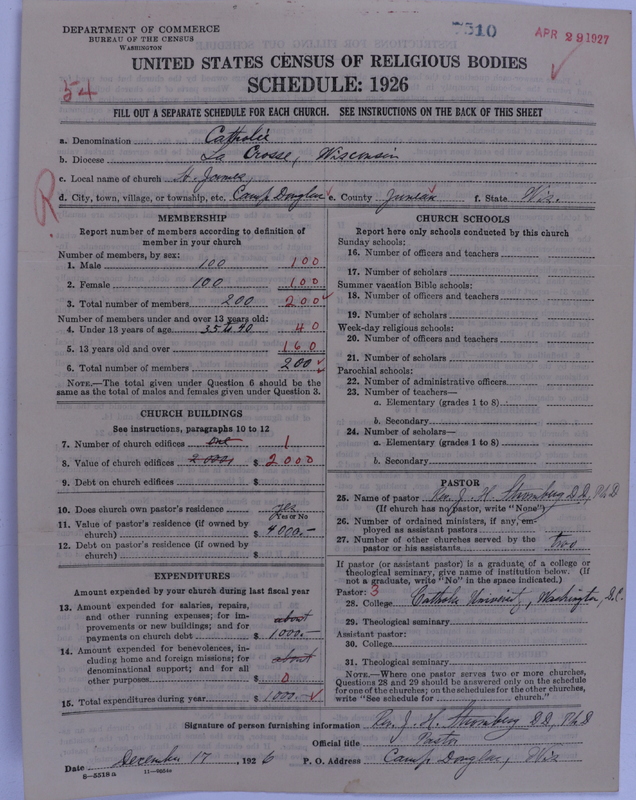 DEPARTMENT OF COMMERCE
BUREAU OF THE CENSUS
WASHINGTON
7510
APR 28 1927
UNITED STATES CENSUS OF RELIGIOUS BODIES
SCHEDULE: 1926
54
FILL OUT A SEPARATE SCHEDULE FOR EACH CHURCH. SEE INSTRUCTIONS ON THE BACK OF THIS SHEET
a. Denomination Catholic
b. Diocese La Crosse, Wisconsin
c. Local name of church St. James,
d. City, town, village, or township, etc. Camp Douglas e. County Juneau f. State Wis.
R
MEMBERSHIP
Report number of members according to definition of member in your church
Number of members, by sex:
1. Male 100 100
2. Female 100 100
3. Total number of members 200 200
Number of members under and over 13 years old:
4. Under 13 years of age 35 to 40 40
5. 13 years old and over 160
6. Total number of members 200
NOTE.—The total given under Question 6 should be same as the total of males and females given under Question 3.
CHURCH BUILDINGS
See instructions, paragraphs 10 to 12
7. Number of church edifices one 1
8. Value of church edifices 2000 $ 2000
9. Debt on church edifices $
10. Does church own pastor's residence yes
Yes or No
11. Value of pastor's residence (if owned by church) $ 4000.—
12. Debt on pastor's residence (if owned by church) $
EXPENDITURES
Amount expended by your church during last fiscal year
13. Amount expended for salaries, repairs, and other running expenses; for improvements or new buildings; and for payments on church debt about $ 1000.—
14. Amount expended for benevolences, including home and foreign missions; for denominational support; and for all other purposes about $ 0
15. Total expenditures during year $ 1000.—
CHURCH SCHOOLS
Report here only schools conducted by this church
Sunday schools:
16. Number of officers and teachers
17. Number of scholars
Summer vacation Bible schools:
18. Number of officers and teachers
19. Number of scholars
Week-day religious schools:
20. Number of officers and teachers
21. Number of scholars
Parochial schools:
22. Number of administrative officers
23. Number of teachers—
a. Elementary (grades 1 to 8)
b. Secondary
24. Number of scholars—
a. Elementary (grades 1 to 8)
b. Secondary
PASTOR
25. Name of pastor Rev. J. H. D.D., Ph D
(If church has no pastor, write "None")
26. Number of ordained ministers, if any, employed as assistant pastors
27. Number of other churches served by the pastor or his assistants two
If pastor (or assistant pastor) is a graduate of a college or theological seminary, give name of institution below. (If not a graduate, write "No" in the space indicated.)
Pastor: 3
28. College Catholic University, Washington, D.C.
29. Theological seminary
Assistant pastor:
30. College
31. Theological seminary
NOTE.—Where one pastor serves two or more churches, Questions 28 and 29 should be answered only on the schedule for one of the churches; on the schedules for the other churches, write "See schedule for church."
Signature of person furnishing information Rev. J. H. D.D., Ph D
Official title Pastor
Date December 17, 1926 P. O. Address Camp Douglas, Wis
8—5518a 11—9654a